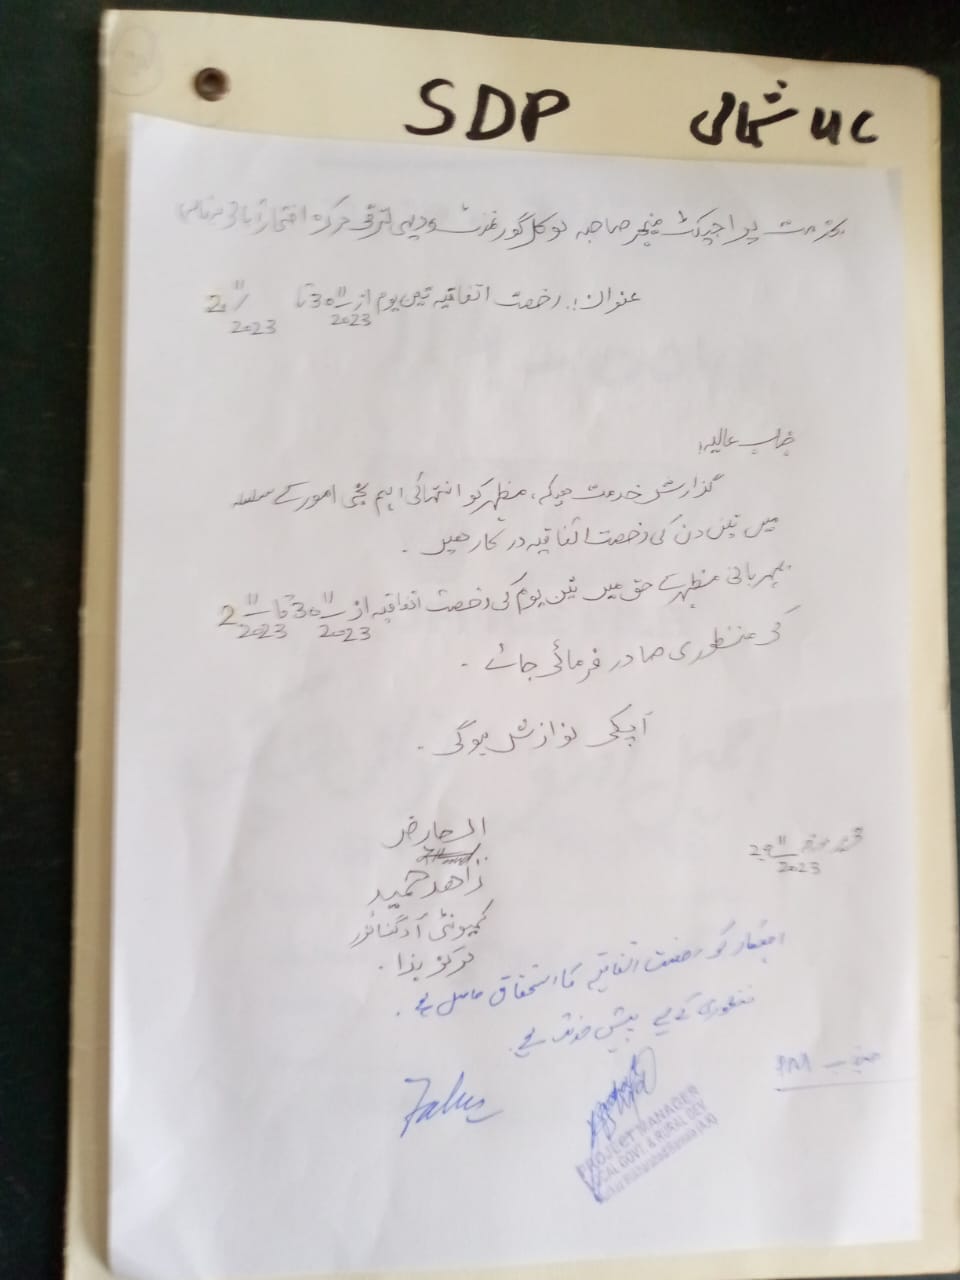 SDP
UC شمالی
بخدمت پراجیکٹ منیجر صاحبہ لوکل گورنمنٹ و دیہی ترقی مرکز افتخارآباد
عنوان:۔ رخصت اتفاقیہ تین یوم از 30/11/2023 تا 2/11/2023
جناب عالیہ!
گذارش خدمت ہیکہ، مظہر کو انتہائی اہم نجی امور کے سلسلہ
میں تین دن کی رخصت اتفاقیہ درکار ھیں ۔
بمہربانی مظہر کے حق میں تین یوم کی رخصت اتفاقیہ از 30/11/2023 تا 2/11/2023
کی منظوری صادر فرمائی جائے ۔
آپکی نوازش ہوگی ۔
العارض
زاھد حمید
کمیونٹی آرگنائزر
مرکز ہذا ۔
29/11/2023
کو رخصت اتفاقیہ کا استحقاق حاصل ہے ۔
منظوری کے لیے پیش خدمت ہے ۔
PM
PROJECT MANAGER
LOCAL GOVT. & RURAL DEV